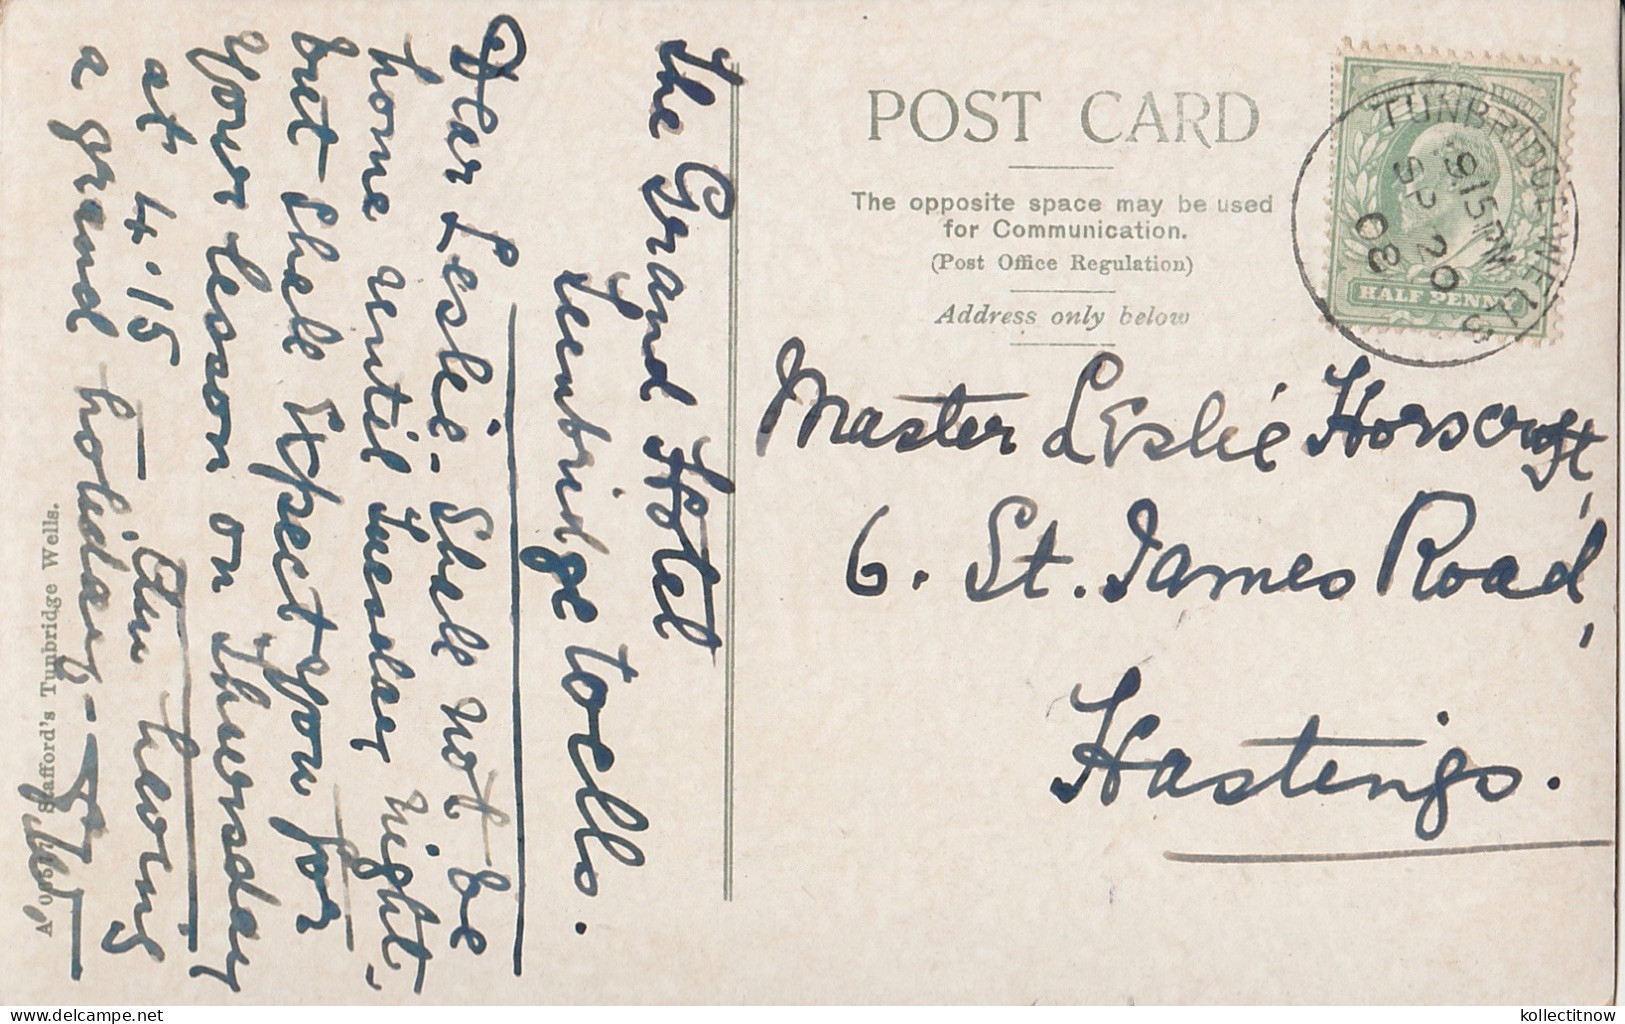 The Grand Hotel
Tunbridge Wells.
Dear Leslie - Shall not be
home until Tuesday night -
but shall Expect you for
your lesson on Thursday
at 4.15 - Am having
a grand holiday -
Stafford's Tunbridge Wells.
POST CARD
The opposite space may be used
for Communication.
(Post Office Regulation)
Address only below
TUNBRIDGE WELLS
9 15 PM
SP 20
08
HALF PENNY
Master Leslie Horscroft,
6. St. James Road,
Hastings.
kollectitnow